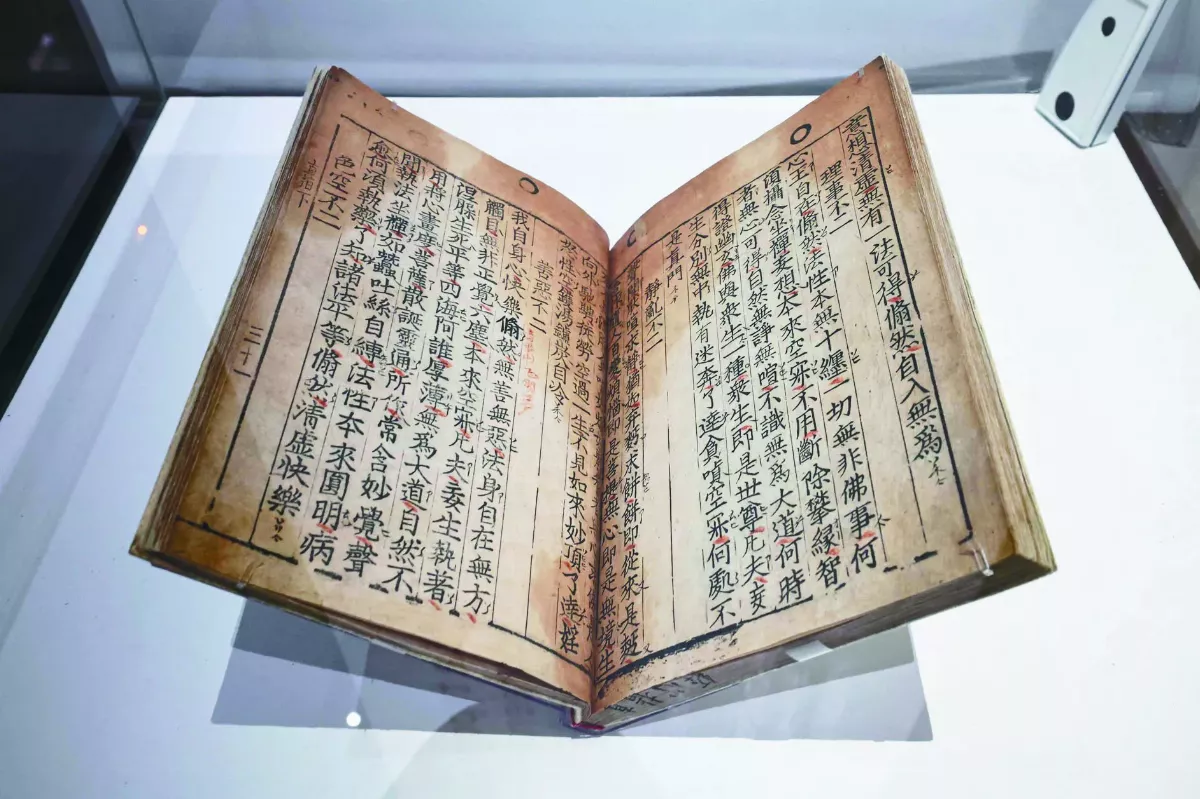 妄想清虛無有一法可得翛然自入無爲
理事不二
心王自性翛然法性本無十纏一切無非佛事何
須攝念坐禪妄想本來空寂不用斷除攀緣智
者無心可得自然無諍無喧不識無爲大道何時
得證幽玄佛與衆生一種衆生即是世尊凡夫妄
生分別無中執有迷奔了達貪嗔空寂何處不
是眞門
靜亂不二
聲聞厭喧求靜猶如弃麪求餠餠即從來是麪
即是菩提無心即是無境生
向外馳騁徒勞空過一生不見如來妙頂了達媱
慾性空鑊湯鑪炭自冷
善惡不二
我自身心快樂翛然無善無惡法身自在無方
觸目無非正覺六塵本來空寂凡夫妄生執著
涅槃生死平等四海阿誰厚薄無爲大道自然不
用將心畫度菩薩散誕靈通所作常含妙覺聲
聞執法坐禪如蠶吐絲自縛法性本來圓明病
愈何須執藥了知諸法平等翛然清虛快樂
色空不二
直指下
三十一